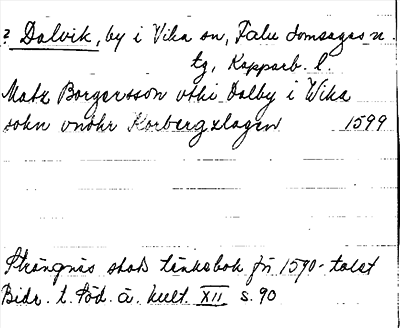 ? Dalvik, by i Vika sn, Falu domsagas n.
tg, Kopparb. l.
Matz Borgersson vthi Dalby i Wika
sokn vndhr Korbergxlagen 1599
Strängnäs stads tänkebok fr 1590-talet
Bidr. t. Söd. ä. kult. XII s. 90